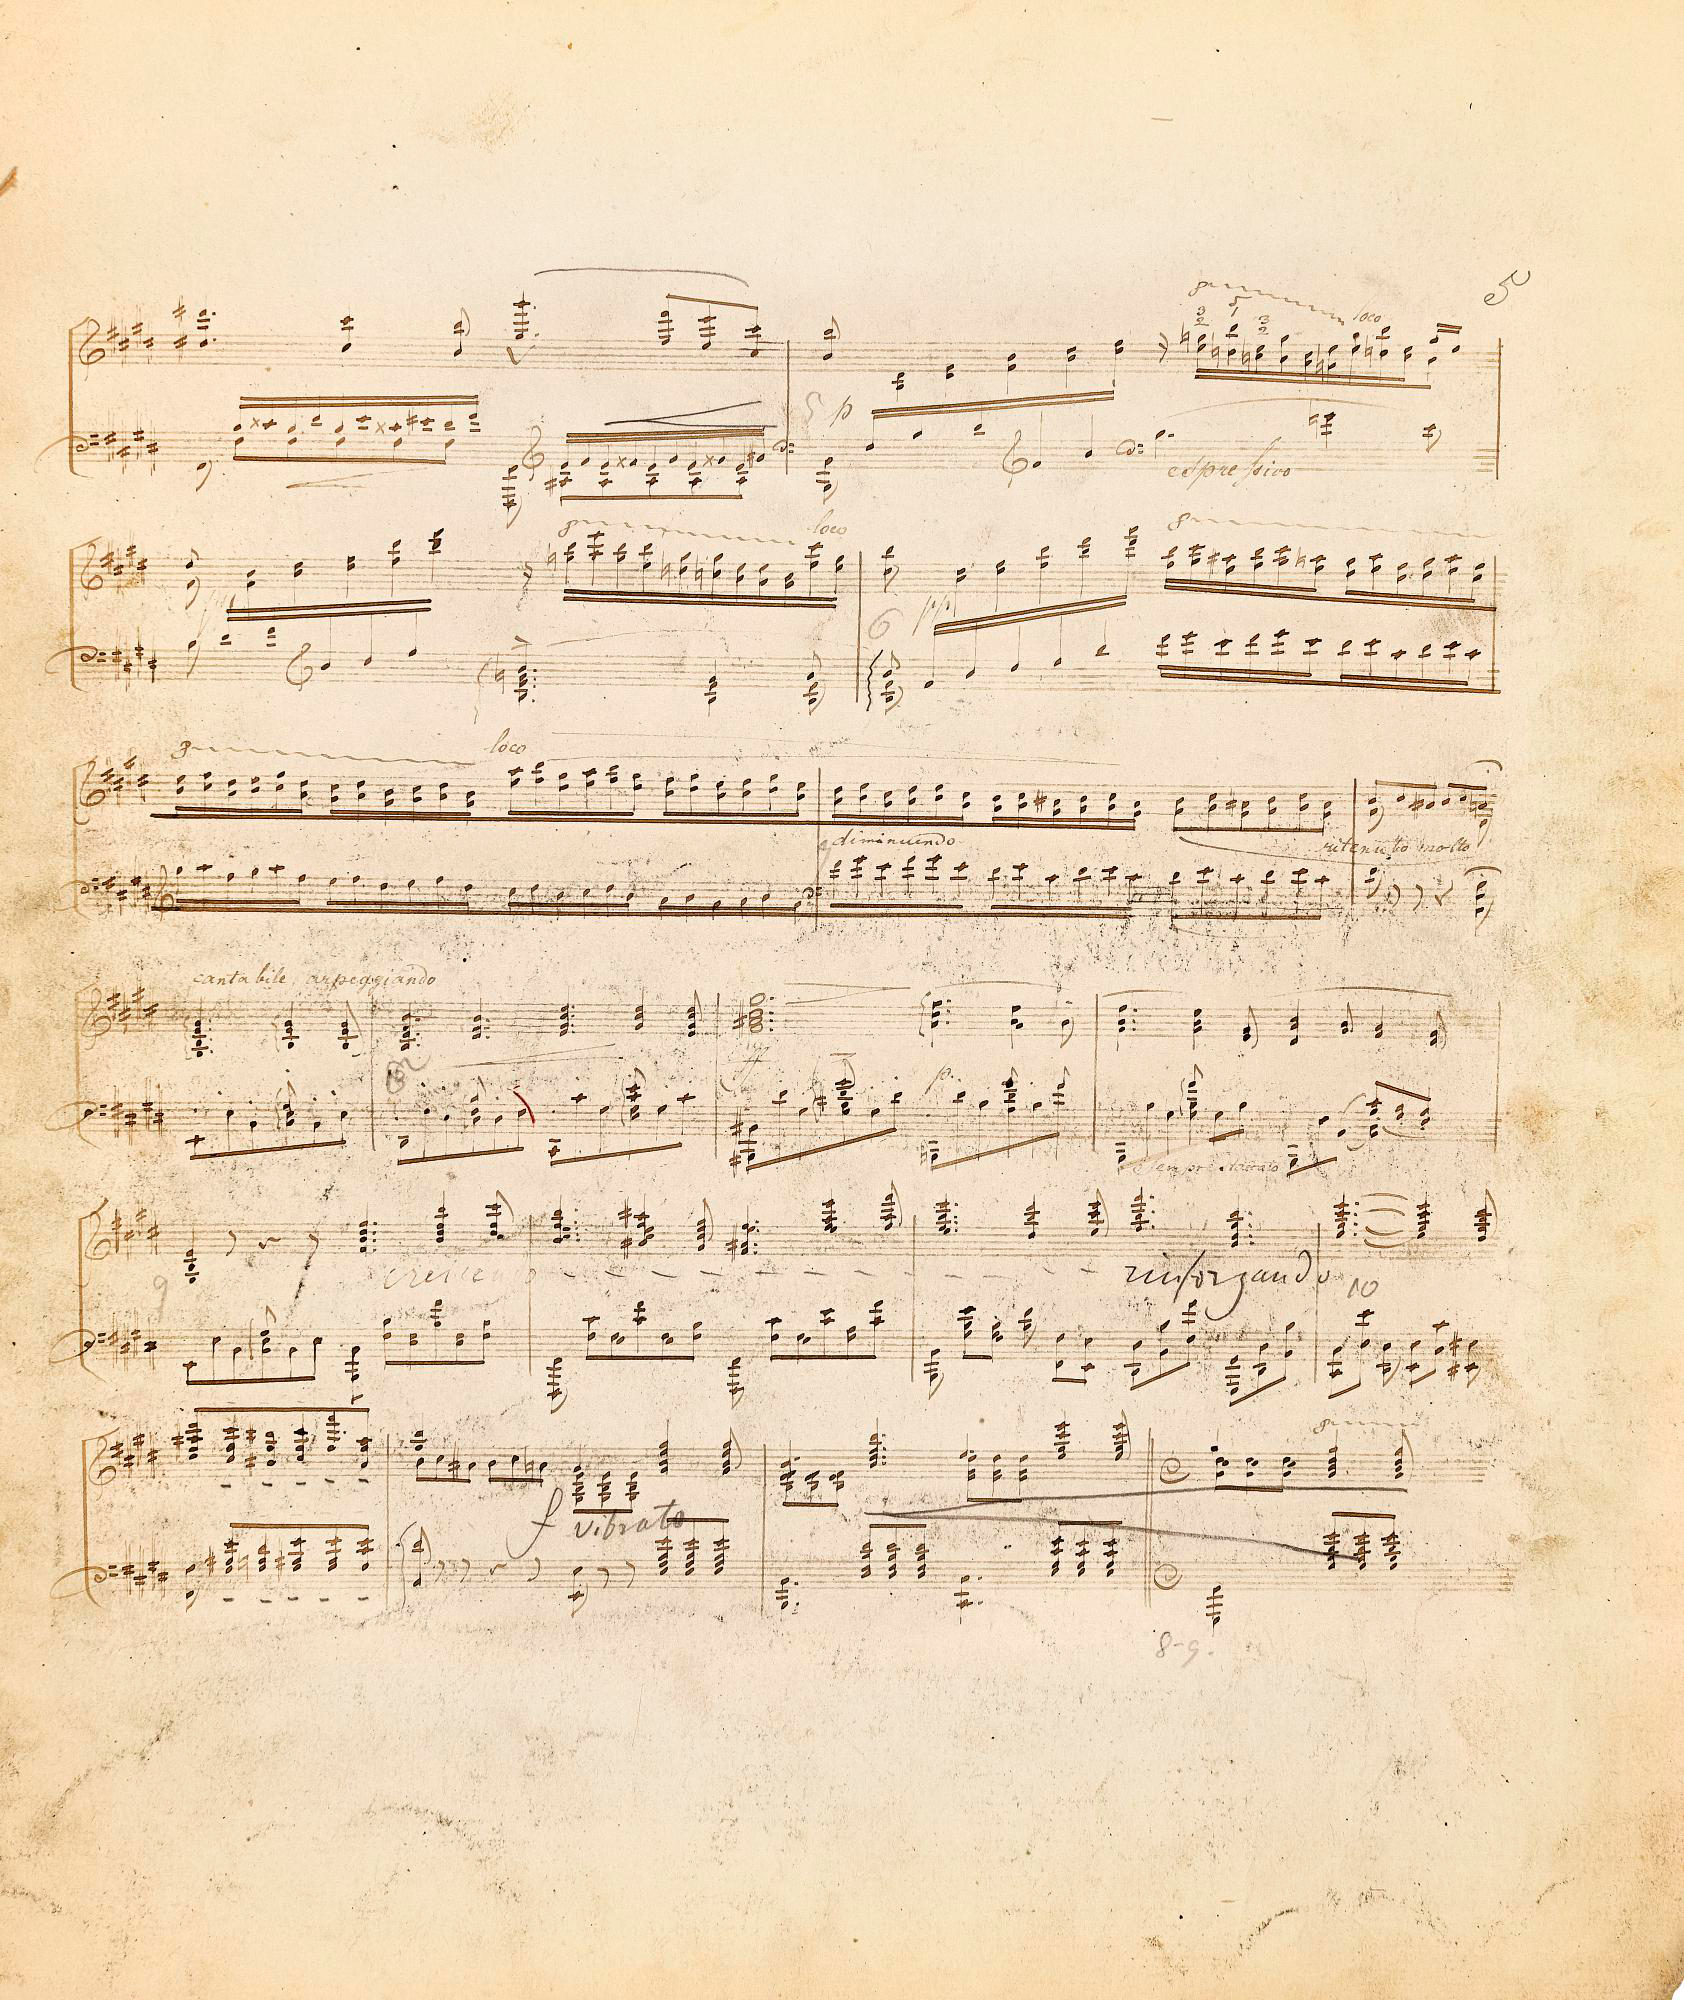 5
8 loco
3 5 3
2 1 2
5 p
espressivo
8 loco 8
6 pp
8 loco
diminuendo ritenuto molto
cantabile arpeggiando
8
ff p.
sempre staccato
9 crescendo rinforzando 10
8
f vibrato
8-9.